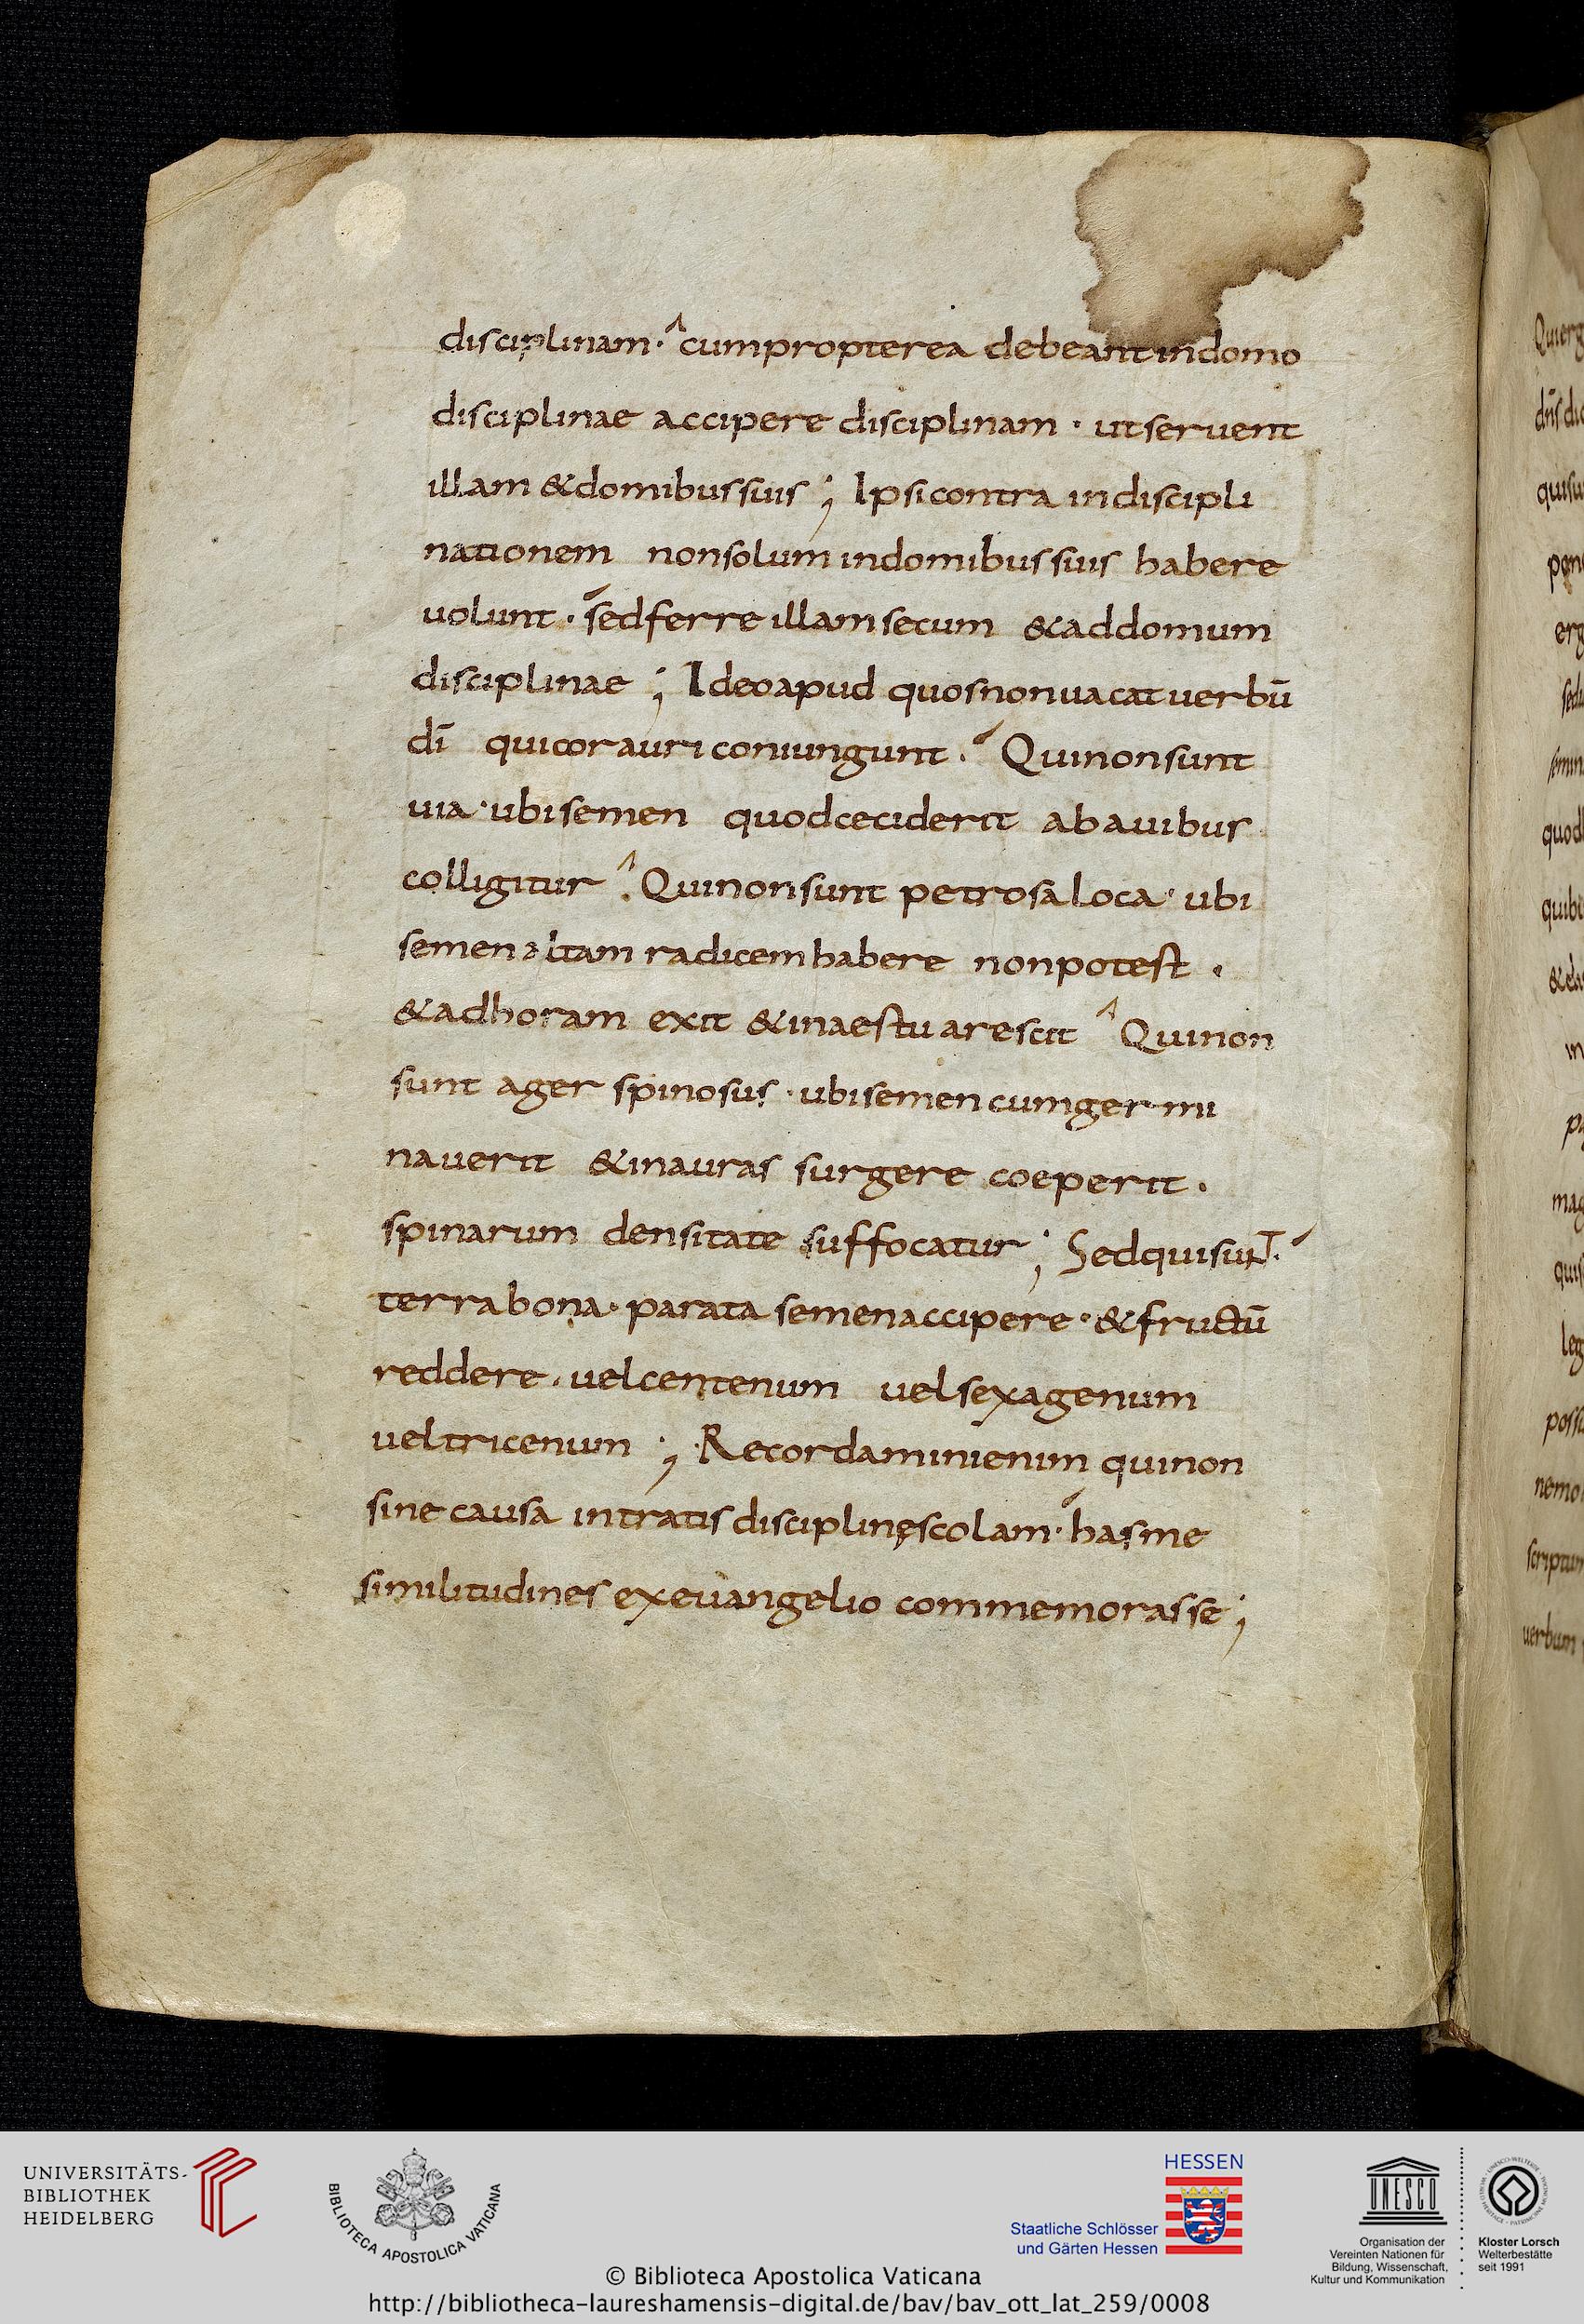 disciplinam · cumpropterea debeant indomo
disciplinae accipere disciplinam · utseruent
illam &domibussuis ; Ipsicontra indiscipli
nationem nonsolum indomibussuis habere
uolunt · sedferre illamsecum &addomum
disciplinae ; Ideoapud quosnonuacatuerbū
dī quicorauriconiungunt . Quinonsunt
uia · ubisemen quodceciderit abauibus
colligitur . Quinonsunt petrosa loca · ubi
semen altam radicemhabere nonpotest .
&adhoram exit &inaestu arescit Quinon
sunt ager spinosus · ubisemencumgermi
nauerit &inauras surgere coeperit .
spinarum densitate suffocatur ; Sedquisunt.
terrabona · parata semenaccipere · &fructū
reddere . uelcentenum uelsexagenum
ueltricenum ; Recordaminienim quinon
sine causa intratis disciplinęscolam · hasme
similitudines exeuangelio commemorasse ;
Quierg
dn̄s dic
quisu
erg
semin
quod
quibu
mag
quis
leg
possu
nemo
scriptum
uerbum
UNIVERSITÄTS-
BIBLIOTHEK
HEIDELBERG
BIBLIOTECA APOSTOLICA VATICANA
HESSEN
Staatliche Schlösser
und Gärten Hessen
UNESCO
Organisation der
Vereinten Nationen für
Bildung, Wissenschaft,
Kultur und Kommunikation
Kloster Lorsch
Welterbestätte
seit 1991
© Biblioteca Apostolica Vaticana
http://bibliotheca-laureshamensis-digital.de/bav/bav_ott_lat_259/0008